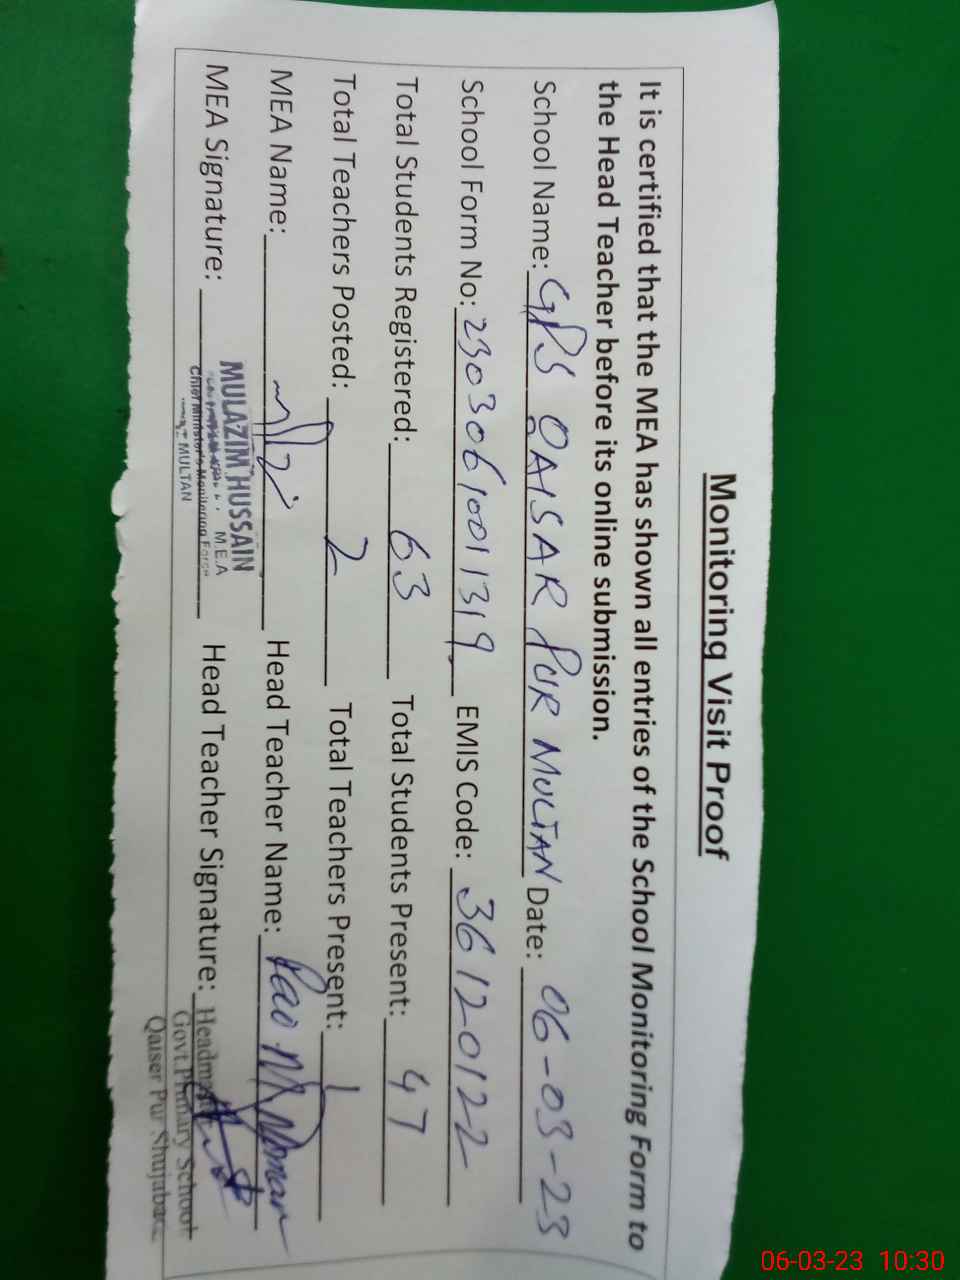 Monitoring Visit Proof
It is certified that the MEA has shown all entries of the School Monitoring Form to
the Head Teacher before its online submission.
School Name: GPS QAISAR PUR MULTAN Date: 06-03-23
School Form No: 2303061001319 EMIS Code: 36120122
Total Students Registered: 63 Total Students Present: 47
Total Teachers Posted: 2 Total Teachers Present: 1
MEA Name: Head Teacher Name: Rao M Noman
MEA Signature: Head Teacher Signature:
MULAZIM HUSSAIN
M.E.A
Chief Minister's Monitoring Force
MULTAN
Govt Primary School
Qaiser Pur Shujabad
06-03-23 10:30